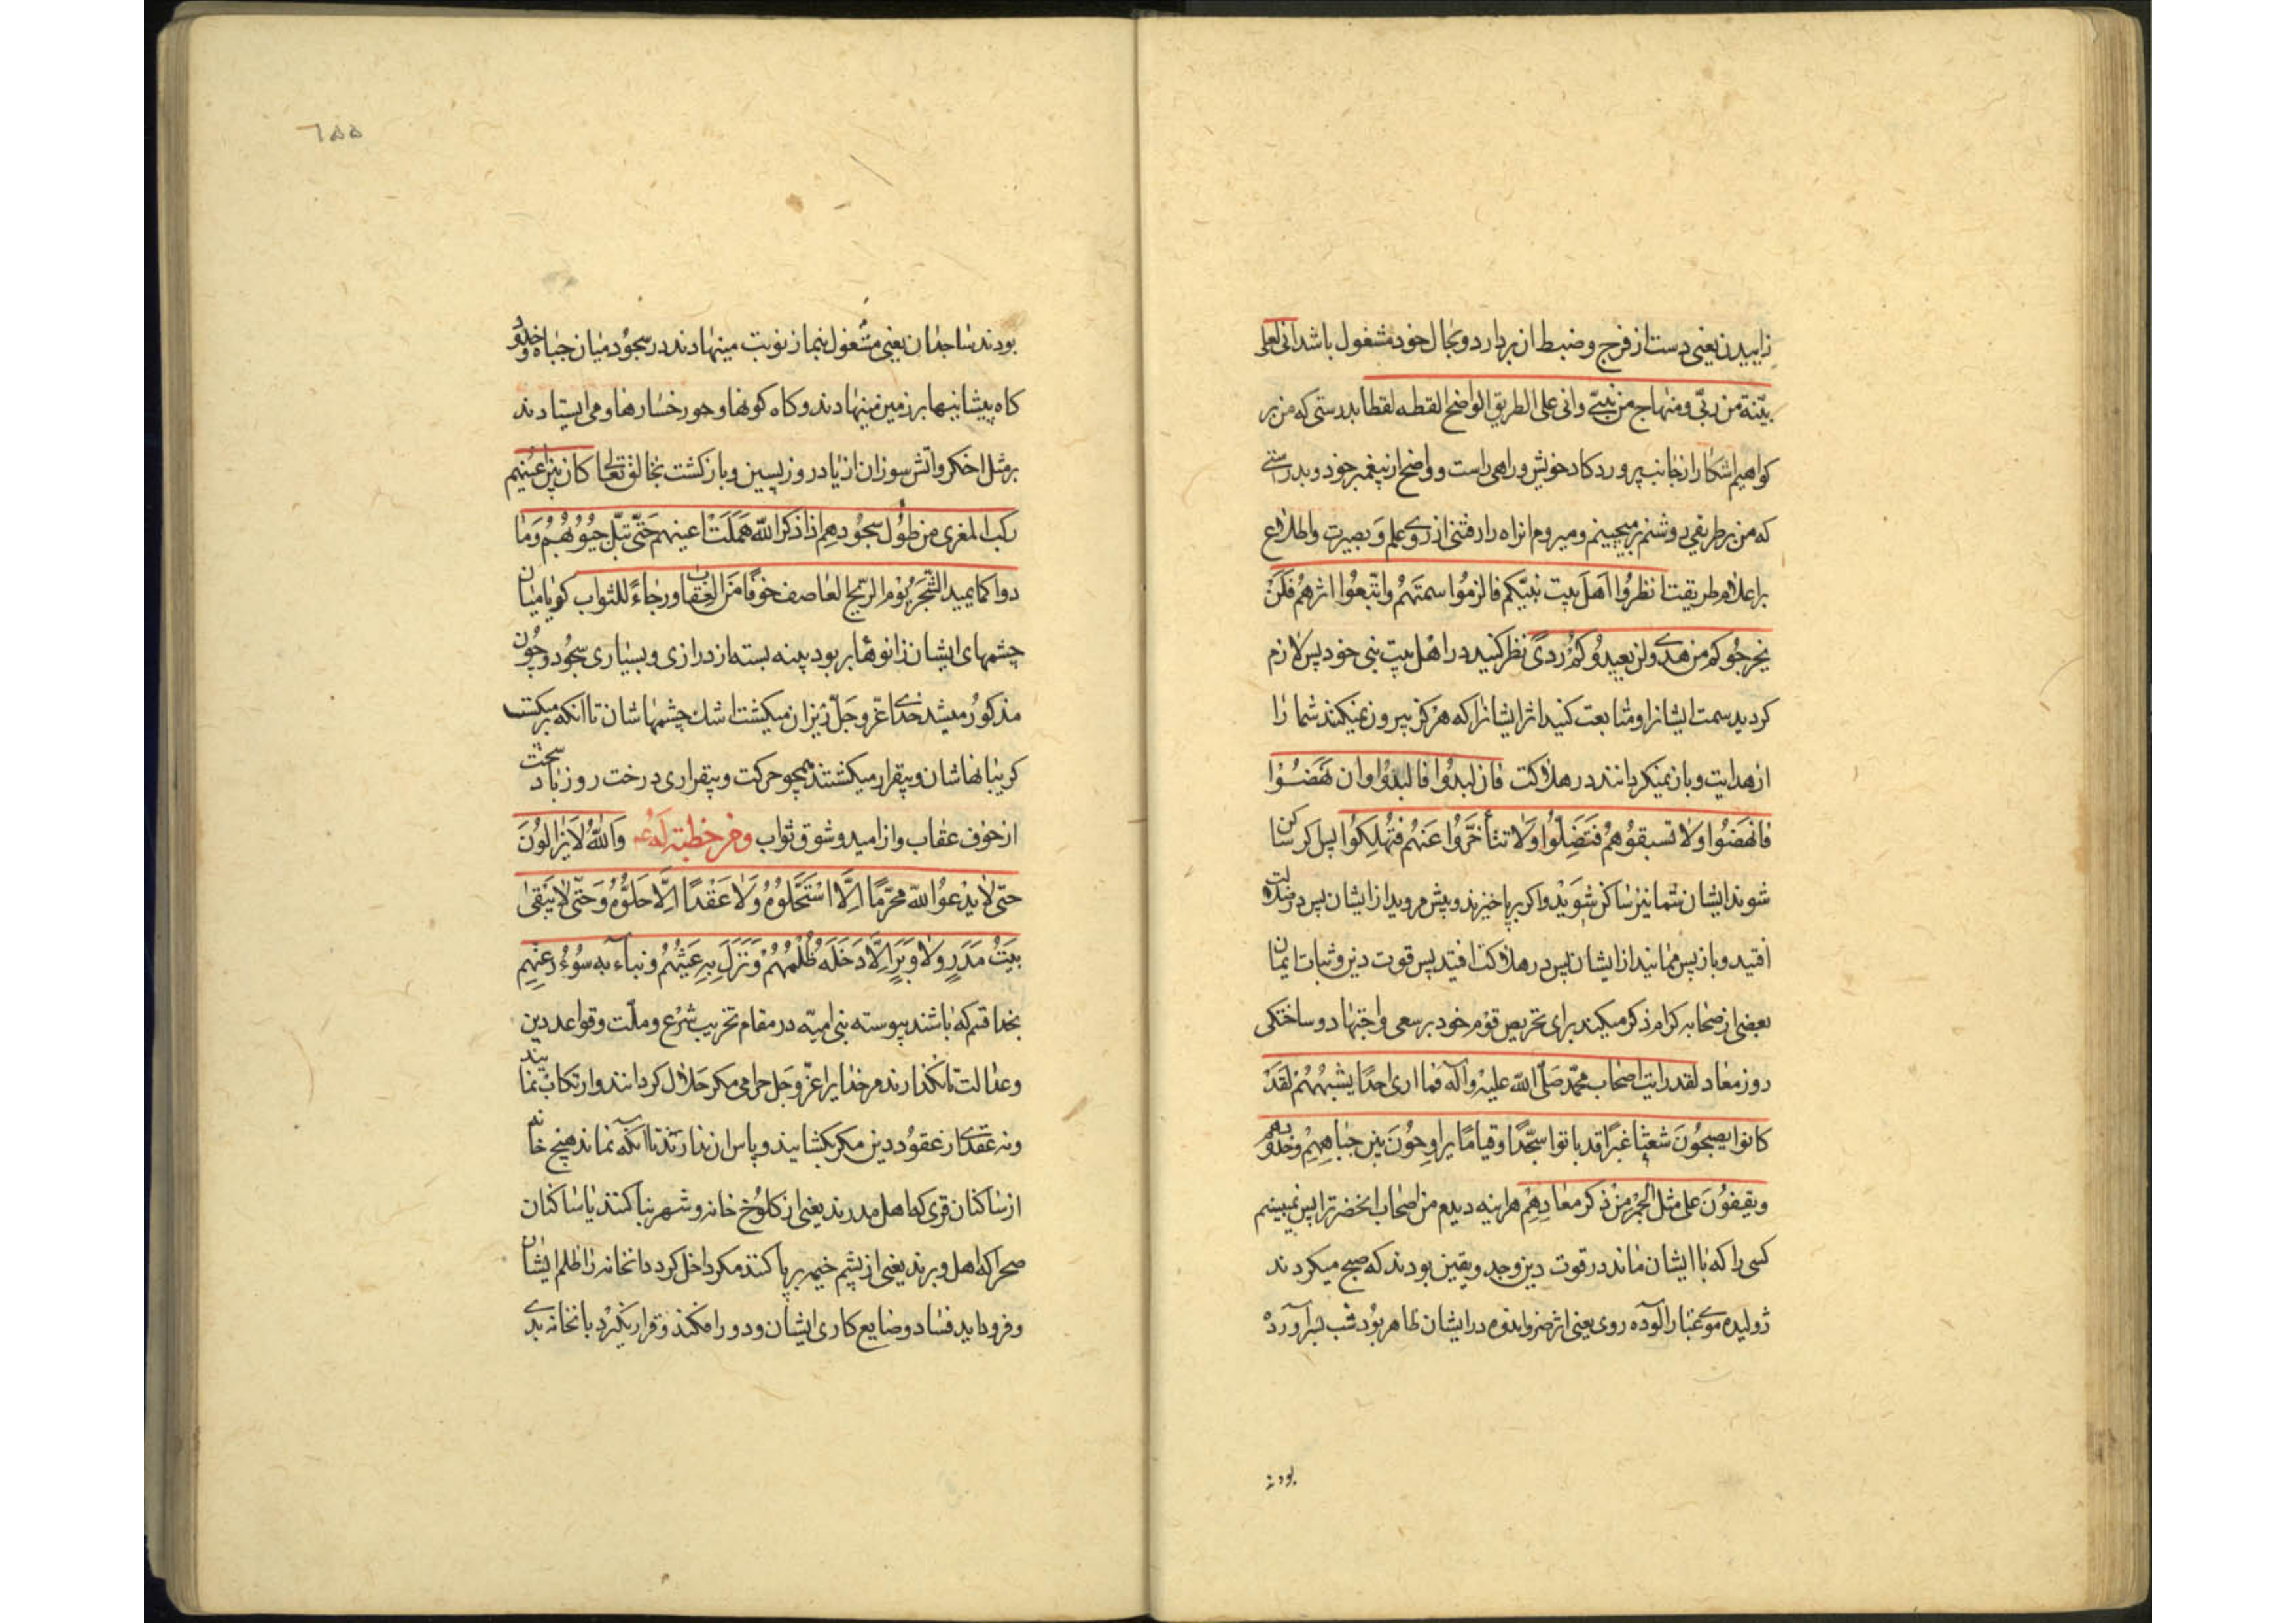 زاییدن یعنی دست از فرج و ضبط ان بردارد و بحال خود مشغول باشد انی لعلی
بیّنة من ربّی و منهاج من نبیّی و انی علی الطریق الواضح القطه لقطا بدرستی که من بر
کواهیم اشکارا از جانب پروردکار خویش و راهی راست و واضح از پیغمبر خود و بدرستی
که من بر طریقی روشنم برمیچینم و میروم انراه را رفتنی از روی علم و بصیرت و اطلاع
بر اعلام طریقت انظرُوا اَهلَ بیت نبیّکم فالزمُوا سمتَهُم و اتّبعُوا اثرهُم فَلَنْ
یخرجُوکم من هدی و لن یعیدُوکُم رَدیً نظر کنید در اهل بیت نبی خود پس لازم
کردید سمت ایشانرا و متابعت کنید اثر ایشانرا که هرکز بیرون نمیکنند شما را
از هدایت و باز نمیکردانند در هلاکت فان لبدُوا فالبدُوا و ان نَهَضُوا
فانهَضُوا و لا تسبقوُهم فَتَضِلّوُا وَلا تتأخّرُوا عَنهُم فتَهلِکوُا پس اکر ساکن
شوند ایشان شما نیز ساکن شوید و اکر برپا خیزند و پیش مروید از ایشان پس در ضلالت
افتید و باز پس ممانید از ایشان پس در هلاکت افتید پس قوت دین و ثبات ایمان
بعضی از صحابه کرام ذکر میکند برای تحریص قوم خود بر سعی و اجتهاد و ساختکی
روز معاد لقد رایت اصحاب محمّد صَلّی الله علیه وآله فما اری احدًا یشبهُهُم لقَدْ
کانوا یصبحوُنَ شعثًا غبرًا قد باتوا سجّدًا و قیامًا یراوحُونَ بین جباهِهِم و خدودهم
و یقفوُنَ علی مثل الجَمر منْ ذکر معادِهِم هراینه دیدم من اصحاب انحضرترا پس نمیبینم
کسی را که با ایشان ماند در قوت دین وجد و یقین بودند که صبح میکردند
ژولیده موی غبار آلوده روی یعنی اثر ضر و اندوه در ایشان ظاهر بُود شب بسر آورده
بودند
٦٥٥
بودند ساجدان یعنی مشغول بنماز نوبت مینهادند در سجُود میان جباه و خدود
کاه پیشانیها بر زمین مینهادند و کاه کونها و رخسارها و می ایستادند
بر مثل اخکر و اتش سوزان از یاد روز پسین و بازکشت بخالق تعالی کان بین اعینهم
رکب المغری من طوُل سجُودهم اذا ذکر الله هَمَلَتْ اعینهم حَتّی تبلّ جیُوُبهُم وَمَا
دوا کما یمید الشّجَر یَوُم الرّیح العاصف خوفًا مَن العِقاب و رجاءً للثواب کویا میان
چشمهای ایشان زانوهای بز بود پینه بسته از درازی و بسیاری سجُود و چُون
مذکوُر میشد خدای عزّ و جَلّ ریزان میکشت اشک چشمهاشان تا انکه تر میکشت
کریبانهاشان و بیقرار میکشتند همچو حرکت و بیقراری درخت روز باد سخت
از خوف عقاب و از امید و شوق ثواب و من خطبته لَهُ ع وَالله لاَیَزالوُنَ
حتّی لا یدَعوُا لله محرّمًا اِلَّا اسْتَحَلّوُهُ وَلَا عَقْدًا اِلَّا حَلّوُهُ وَ حَتّی لا یَبْقیٰ
بَیتُ مَدَرٍ وَلا وَبَرٍ اِلَّا دَخَلَهُ ظُلْمُهُمْ وَنَزَلَ بِهِ عَیْثُهُم وَ نباء به سوُءُ رعیِهم
بخدا قسم که باشند پیوسته بنی امیّه در مقام تخریب شرع و ملّت و قواعد دین
و عدالت تا نکذارند مر خدایرا عزّ و جَل حرامی مکر حَلال کردانند و ارتکاب نمایند
و نه عقدی از عقوُد دین مکر بکشایند و پاس ان ندارند تا انکه نماند هیچ خانه
از ساکنان قری که اهل مدرند یعنی از کلوُخ خانه و شهر بنا کنند یا ساکنان
صحرا که اهل وبرند یعنی از پشم خیمه برپا کنند مکر داخل کردد بانخانه را ظلم ایشان
و فرود اید فساد و ضایع کاری ایشان و دور افکند و قرار نکیرد بانخانه بدی